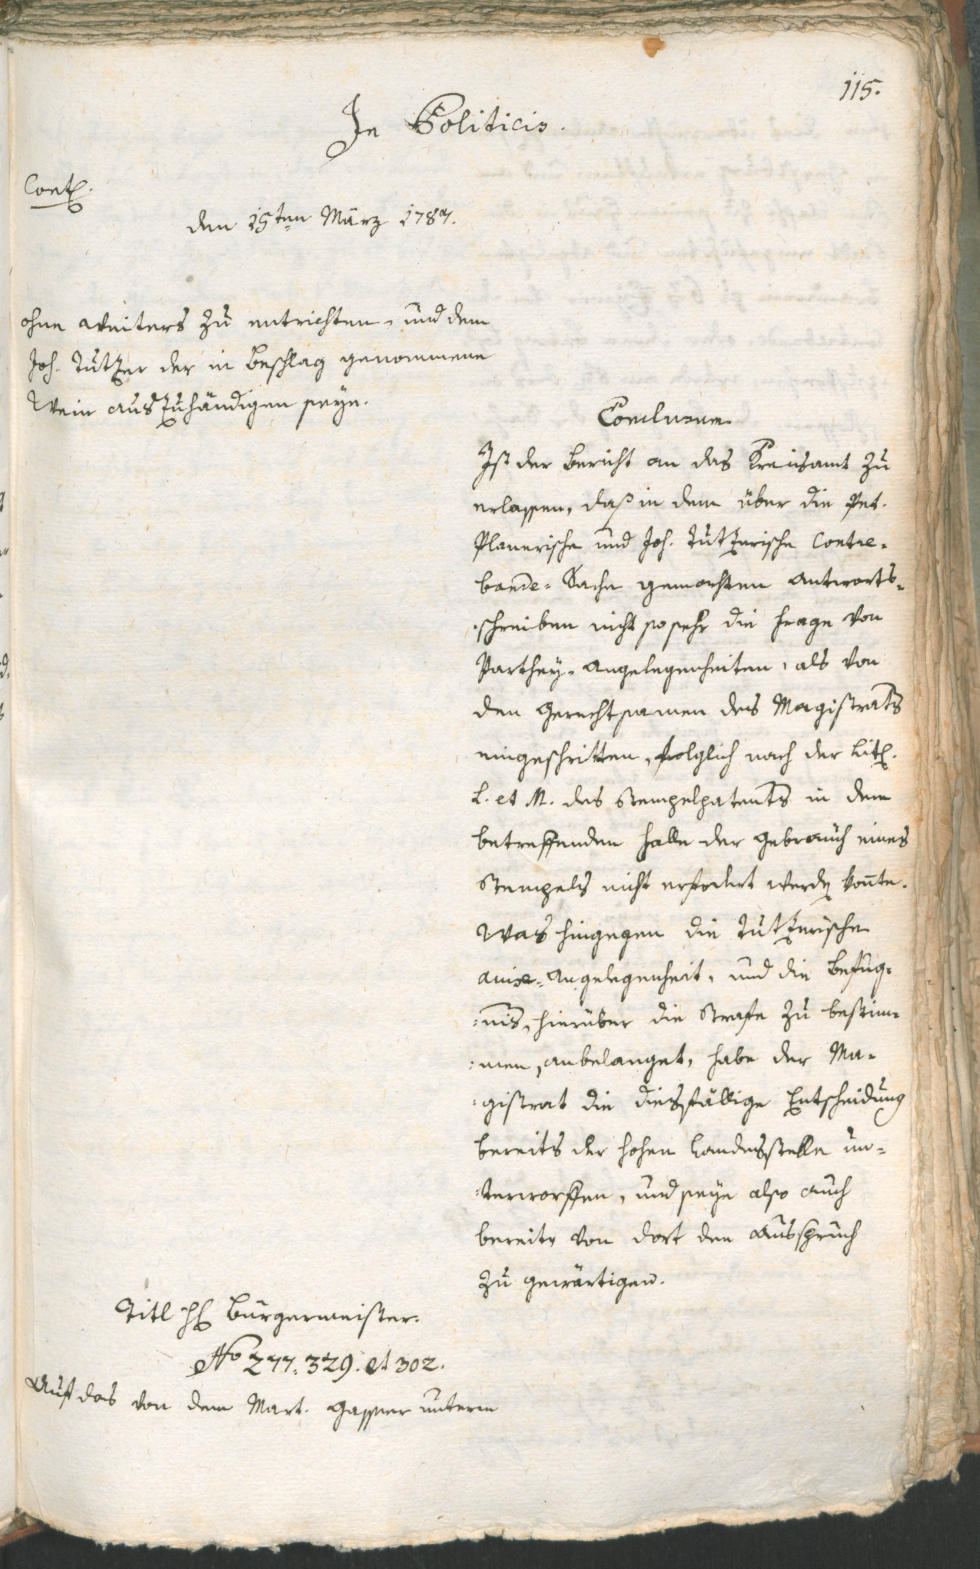 115.
In Politicis.
Cont.
den 15ten März 1787.
ohne weiters zu entrichten, und dem
Joh. Tutzer der in Beschlag genommene
Wein auszuhändigen seye.
Conclusum
Ist der Bericht an das Kreisamt zu
erlassen, daß in dem über die Pet.
Planerische und Joh. Tutzerische Contre-
bande-Sache gemachten Antworts-
schreiben nicht so sehr die Frage von
Parthey-Angelegenheiten, als von
den Gerechtsamen des Magistrats
eingeschritten, folglich nach der Lit.
L. et M. des Stempelpatents in dem
betreffenden Falle der Gebrauch eines
Stempels nicht erfodert werden konnte.
Was hingegen die Tutzerische
Angelegenheit, und die Befug-
:nis, hierüber die Strafe zu bestim-
:men, anbelanget, habe der Ma-
:gistrat die diesfällige Entscheidung
bereits der hohen Landesstelle un-
:terworffen, und seye also auch
bereits von dort den Ausspruch
zu gewärtigen.
Titl H Bürgermeister.
No 277. 329. et 302.
Auf das von dem Mart. Gasser unterm